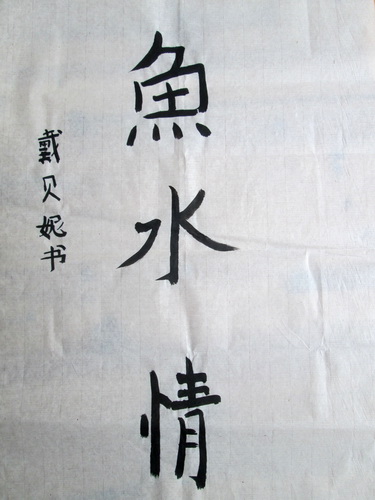 魚水情
戴贝妮书